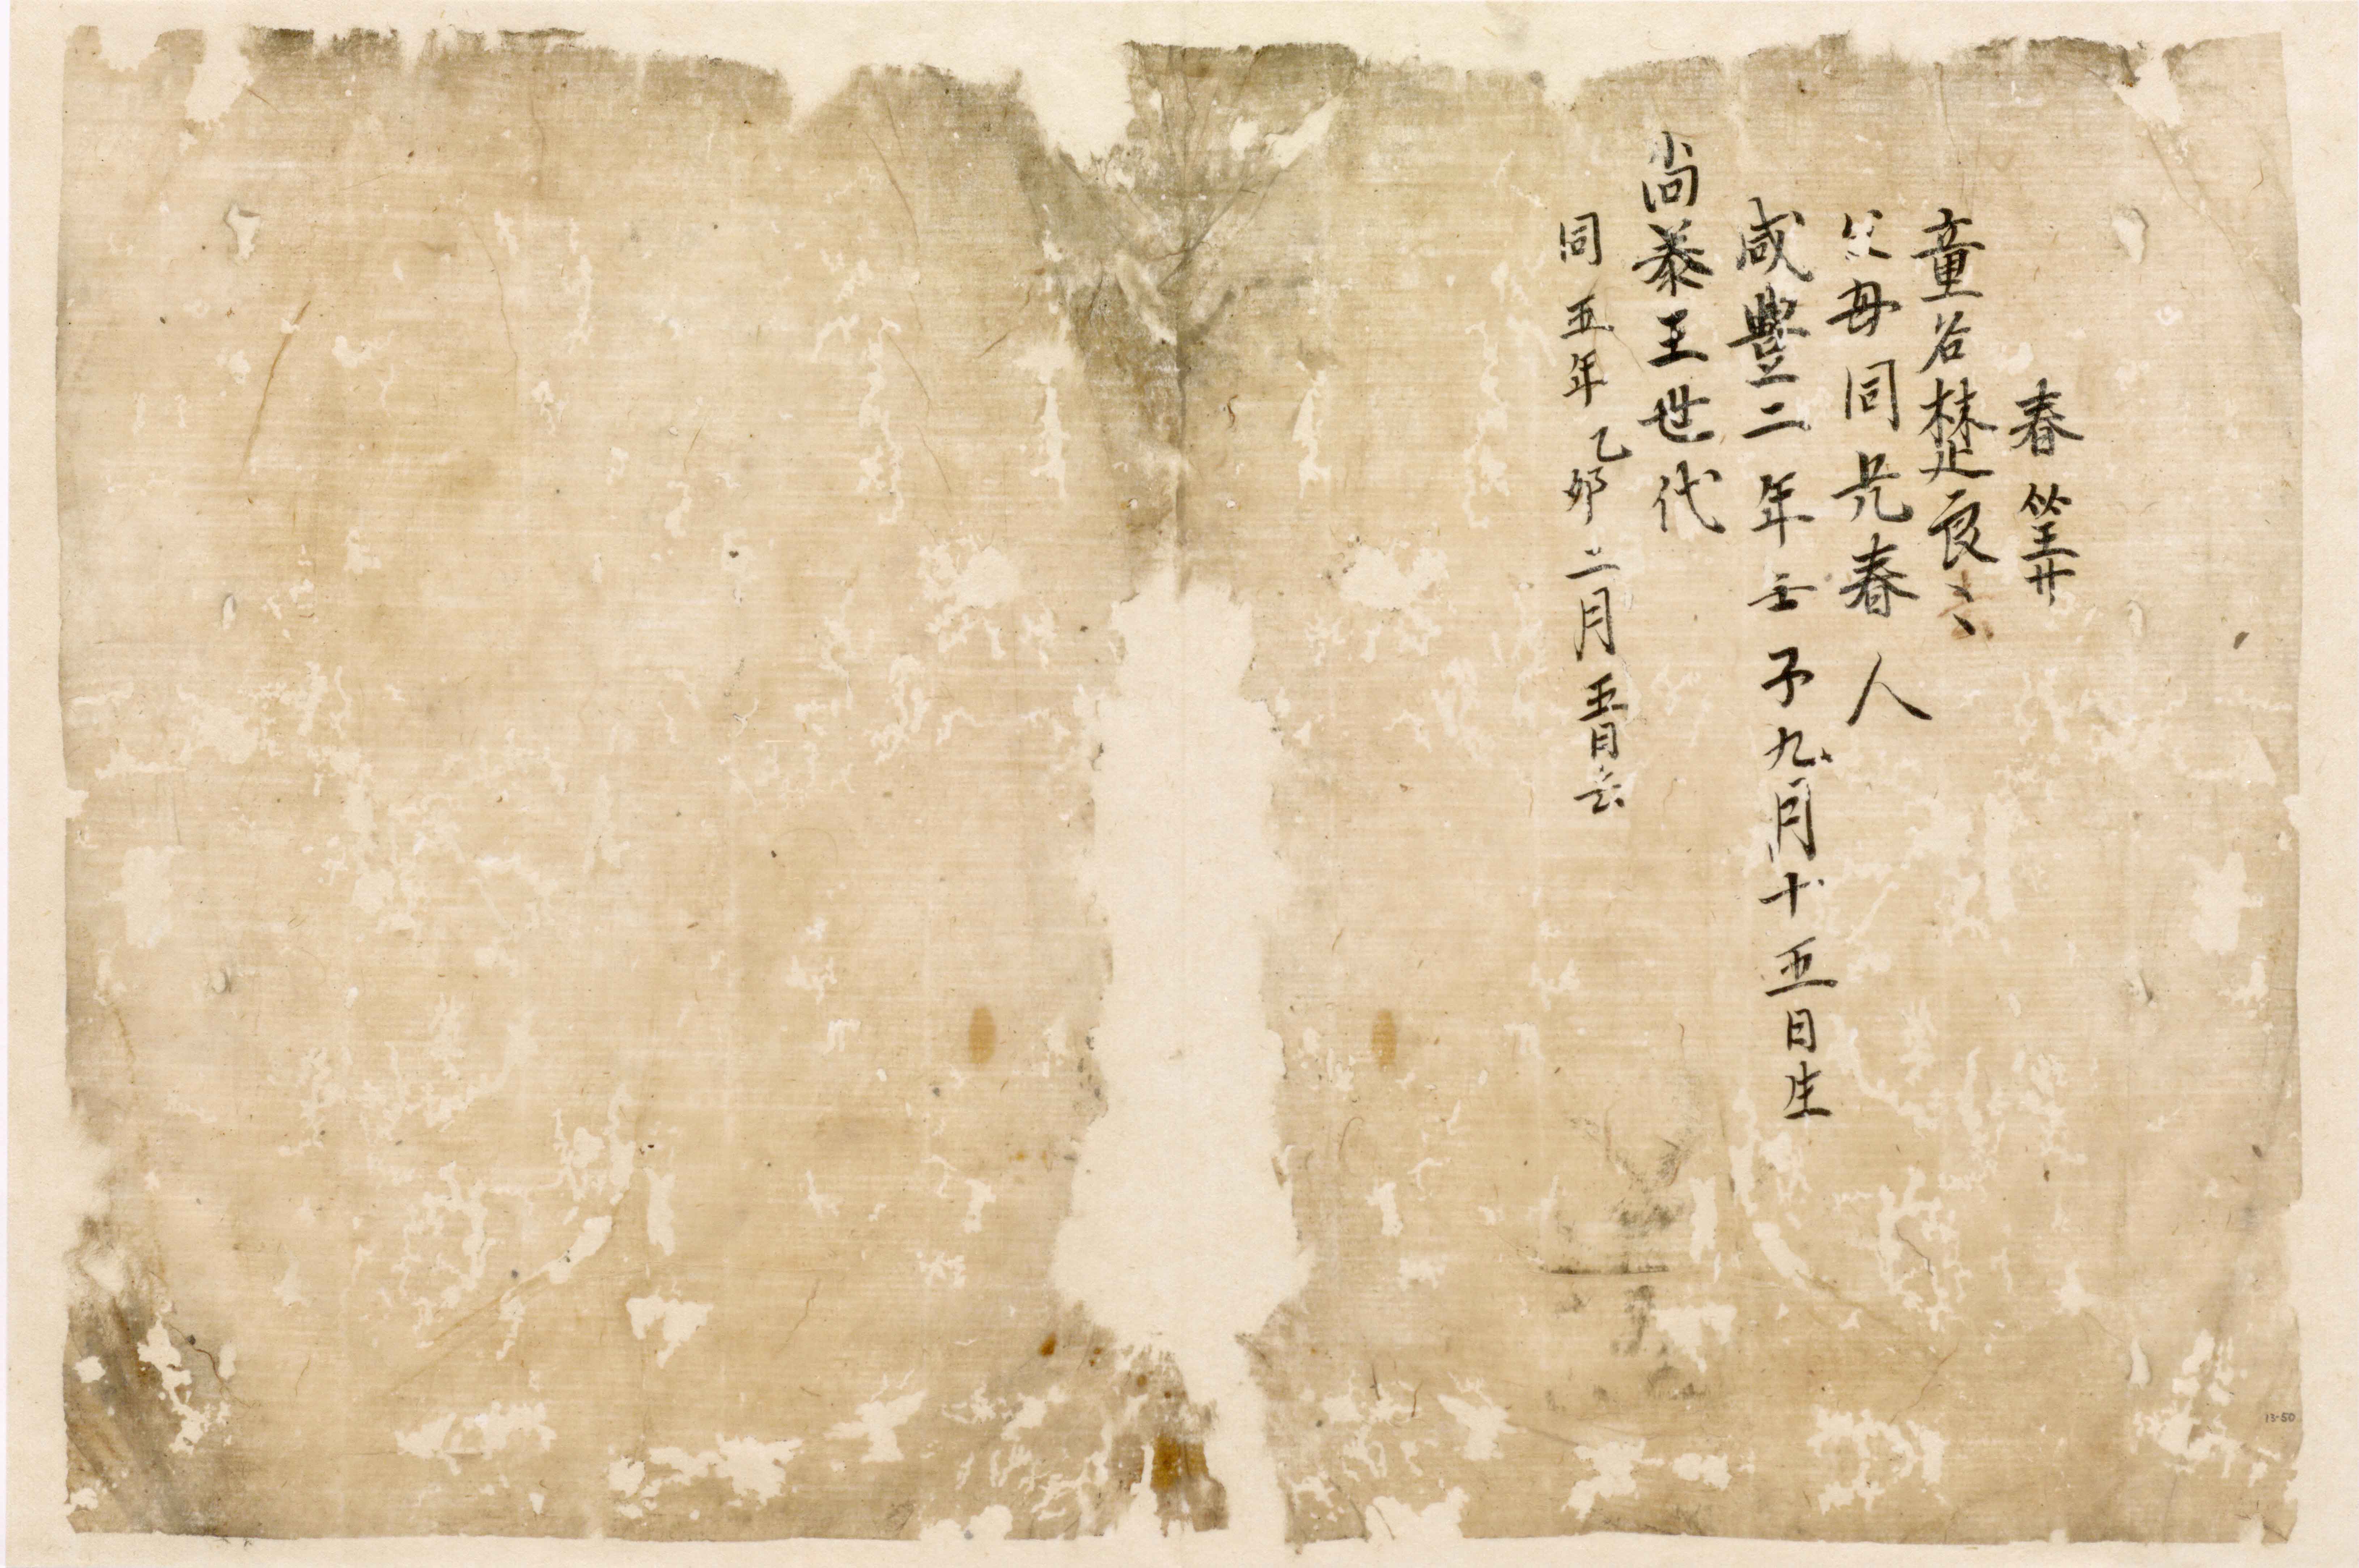 春筭
童名樊良
父母同呉春人
咸豐二年壬子九月十五日生
尚泰王世代
同五年乙卯二月五日
13-50